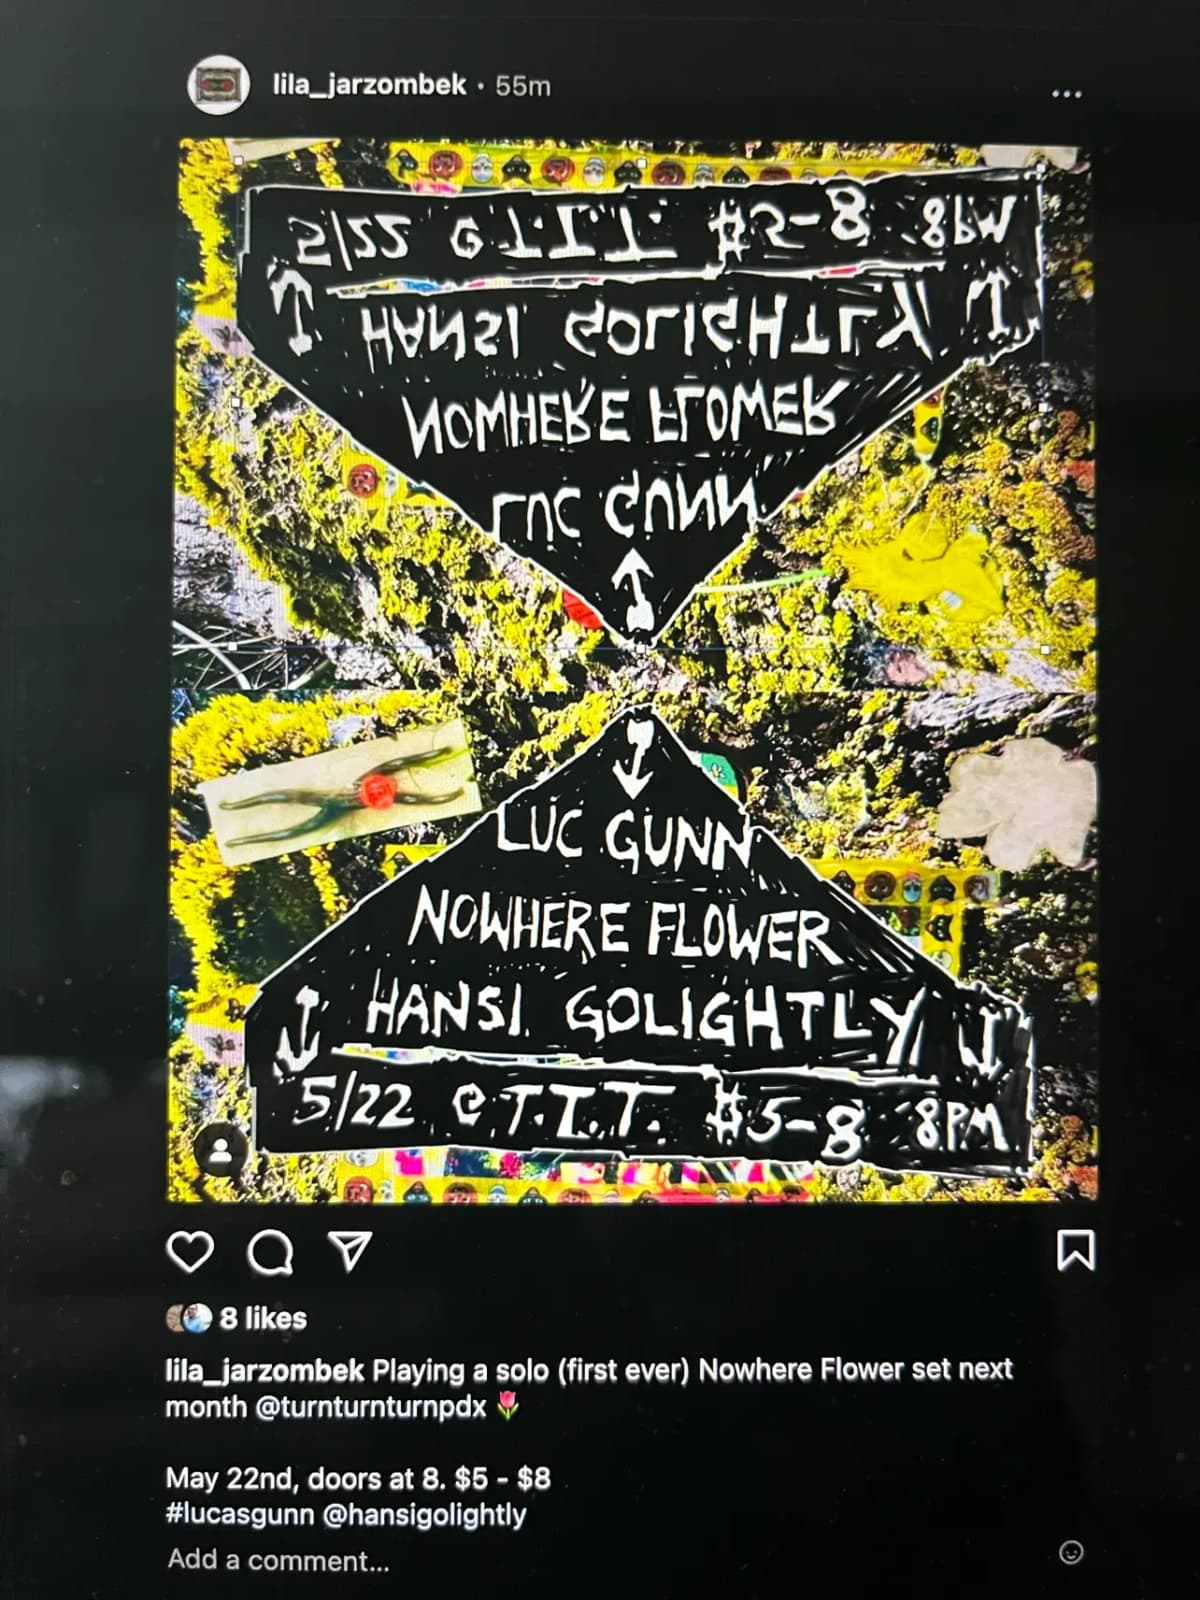 lila_jarzombek • 55m
5/22 @ T.T.T. $5-8 8PM
HANSI GOLIGHTLY
NOWHERE FLOWER
LUC GUNN
LUC GUNN
NOWHERE FLOWER
HANSI GOLIGHTLY
5/22 @ T.T.T. $5-8 8PM
8 likes
lila_jarzombek Playing a solo (first ever) Nowhere Flower set next
month @turnturnturnpdx 🌷
May 22nd, doors at 8. $5 - $8
#lucasgunn @hansigolightly
Add a comment...